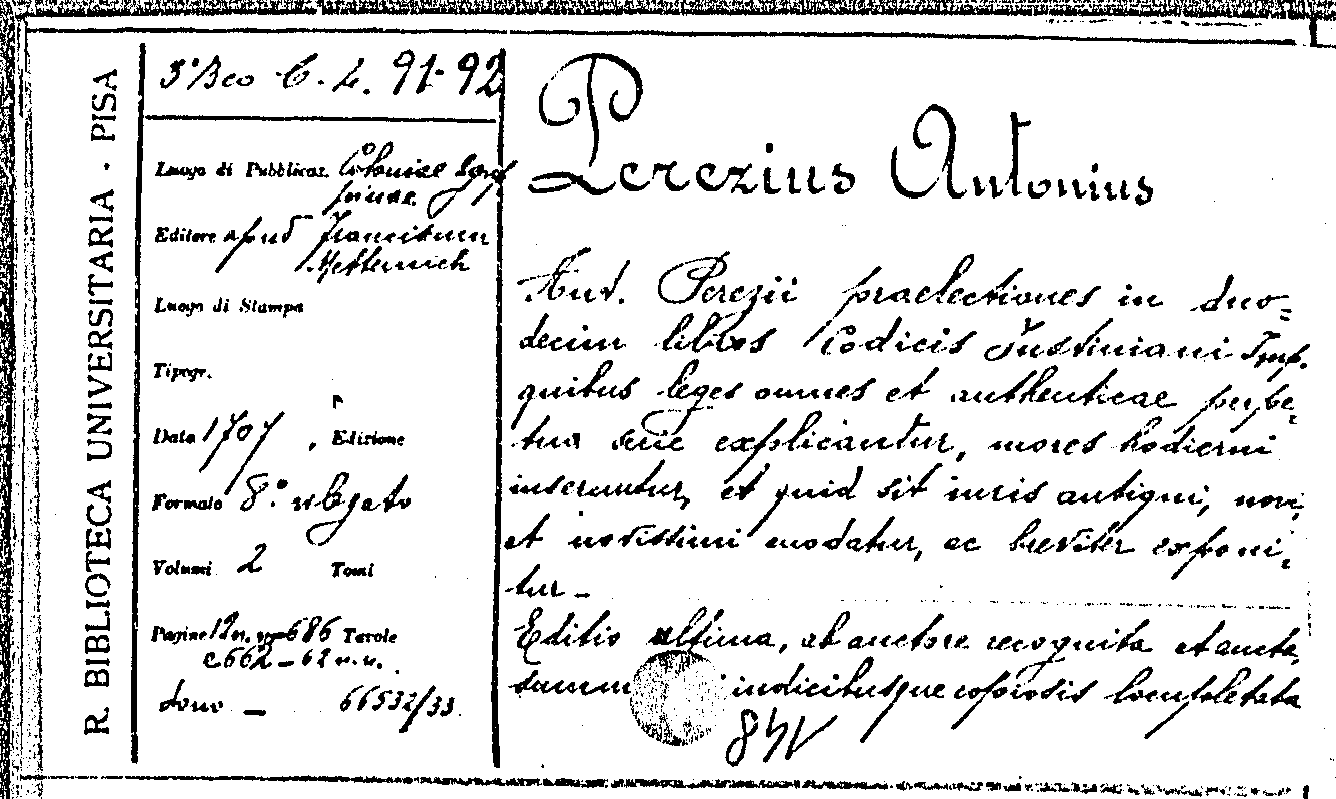 R. BIBLIOTECA UNIVERSITARIA - PISA
3° Bco 6. L. 91-92
Luogo di Pubblicaz. Coloniae Agrip
pinae
Editore apud Franciscum
Metternich
Luogo di Stampa
Tipogr.
Data 1707, Edizione
Formato 8.° slegato
Volumi 2 Tomi
Pagine 12 n. n. - 686 Tavole
e 662 - 62 n. n.
dono - 66532/33
Perezius Antonius
Ant. Perezii praelectiones in duo=
decim libros Codicis Justiniani Imp.
quibus leges omnes et authenticae perpe=
tua serie explicantur, mores hodierni
inseruntur, et quid sit iuris antiqui, novi,
et novissimi enodatur, ac breviter exponi=
tur -
Editio ultima, ab auctore recognita et aucta,
summ indicibusque copiosis locupletata